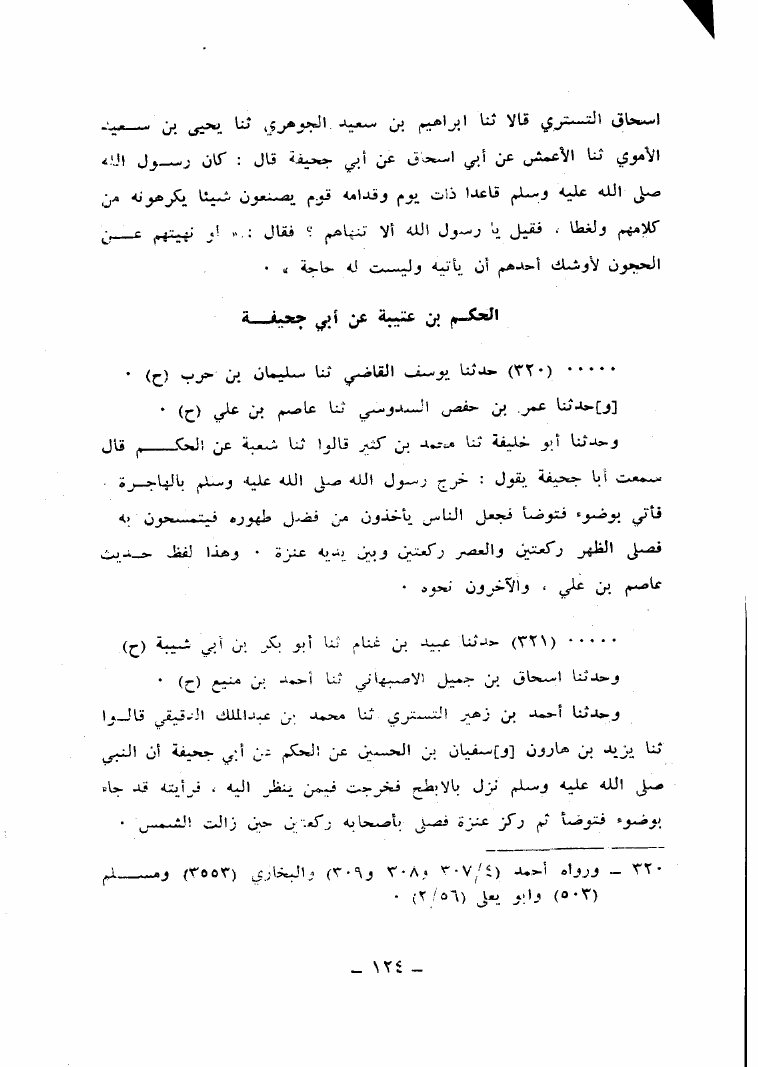 اسحاق التستري قالا ثنا ابراهيم بن سعيد الجوهري ثنا يحيى بن سعيد
الأموي ثنا الأعمش عن أبي اسحاق عن أبي جحيفة قال : كان رسول الله
صلى الله عليه وسلم قاعدا ذات يوم وقدامه قوم يصنعون شيئا يكرهونه من
كلامهم ولغطا ، فقيل يا رسول الله ألا تنهاهم ؟ فقال : « لو نهيتهم عن
الحجون لأوشك أحدهم أن يأتيه وليست له حاجة » ٠
الحكم بن عتيبة عن أبي جحيفة
٠٠٠٠٠ (٣٢٠) حدثنا يوسف القاضي ثنا سليمان بن حرب (ح) ٠
[و]حدثنا عمر بن حفص السدوسي ثنا عاصم بن علي (ح) ٠
وحدثنا أبو خليفة ثنا محمد بن كثير قالوا ثنا شعبة عن الحكم قال
سمعت أبا جحيفة يقول : خرج رسول الله صلى الله عليه وسلم بالهاجرة
فأتي بوضوء فتوضأ فجعل الناس يأخذون من فضل طهوره فيتمسحون به
فصلى الظهر ركعتين والعصر ركعتين وبين يديه عنزة ٠ وهذا لفظ حديث
عاصم بن علي ، والآخرون نحوه ٠
٠٠٠٠٠ (٣٢١) حدثنا عبيد بن غنام ثنا أبو بكر بن أبي شيبة (ح)
وحدثنا اسحاق بن جميل الاصبهاني ثنا أحمد بن منيع (ح) ٠
وحدثنا أحمد بن زهير التستري ثنا محمد بن عبدالملك الدقيقي قالوا
ثنا يزيد بن هارون [و]سفيان بن الحسين عن الحكم عن أبي جحيفة أن النبي
صلى الله عليه وسلم نزل بالابطح فخرجت فيمن ينظر اليه ، فرأيته قد جاء
بوضوء فتوضأ ثم ركز عنزة فصلى بأصحابه ركعتين حين زالت الشمس ٠
٣٢٠ ـ ورواه أحمد (٣٠٧/٤ و٣٠٨ و٣٠٩) والبخاري (٣٥٥٣) ومسلم
(٥٠٣) وابو يعلى (٢/٥٦) ٠
ـ ١٢٤ ـ